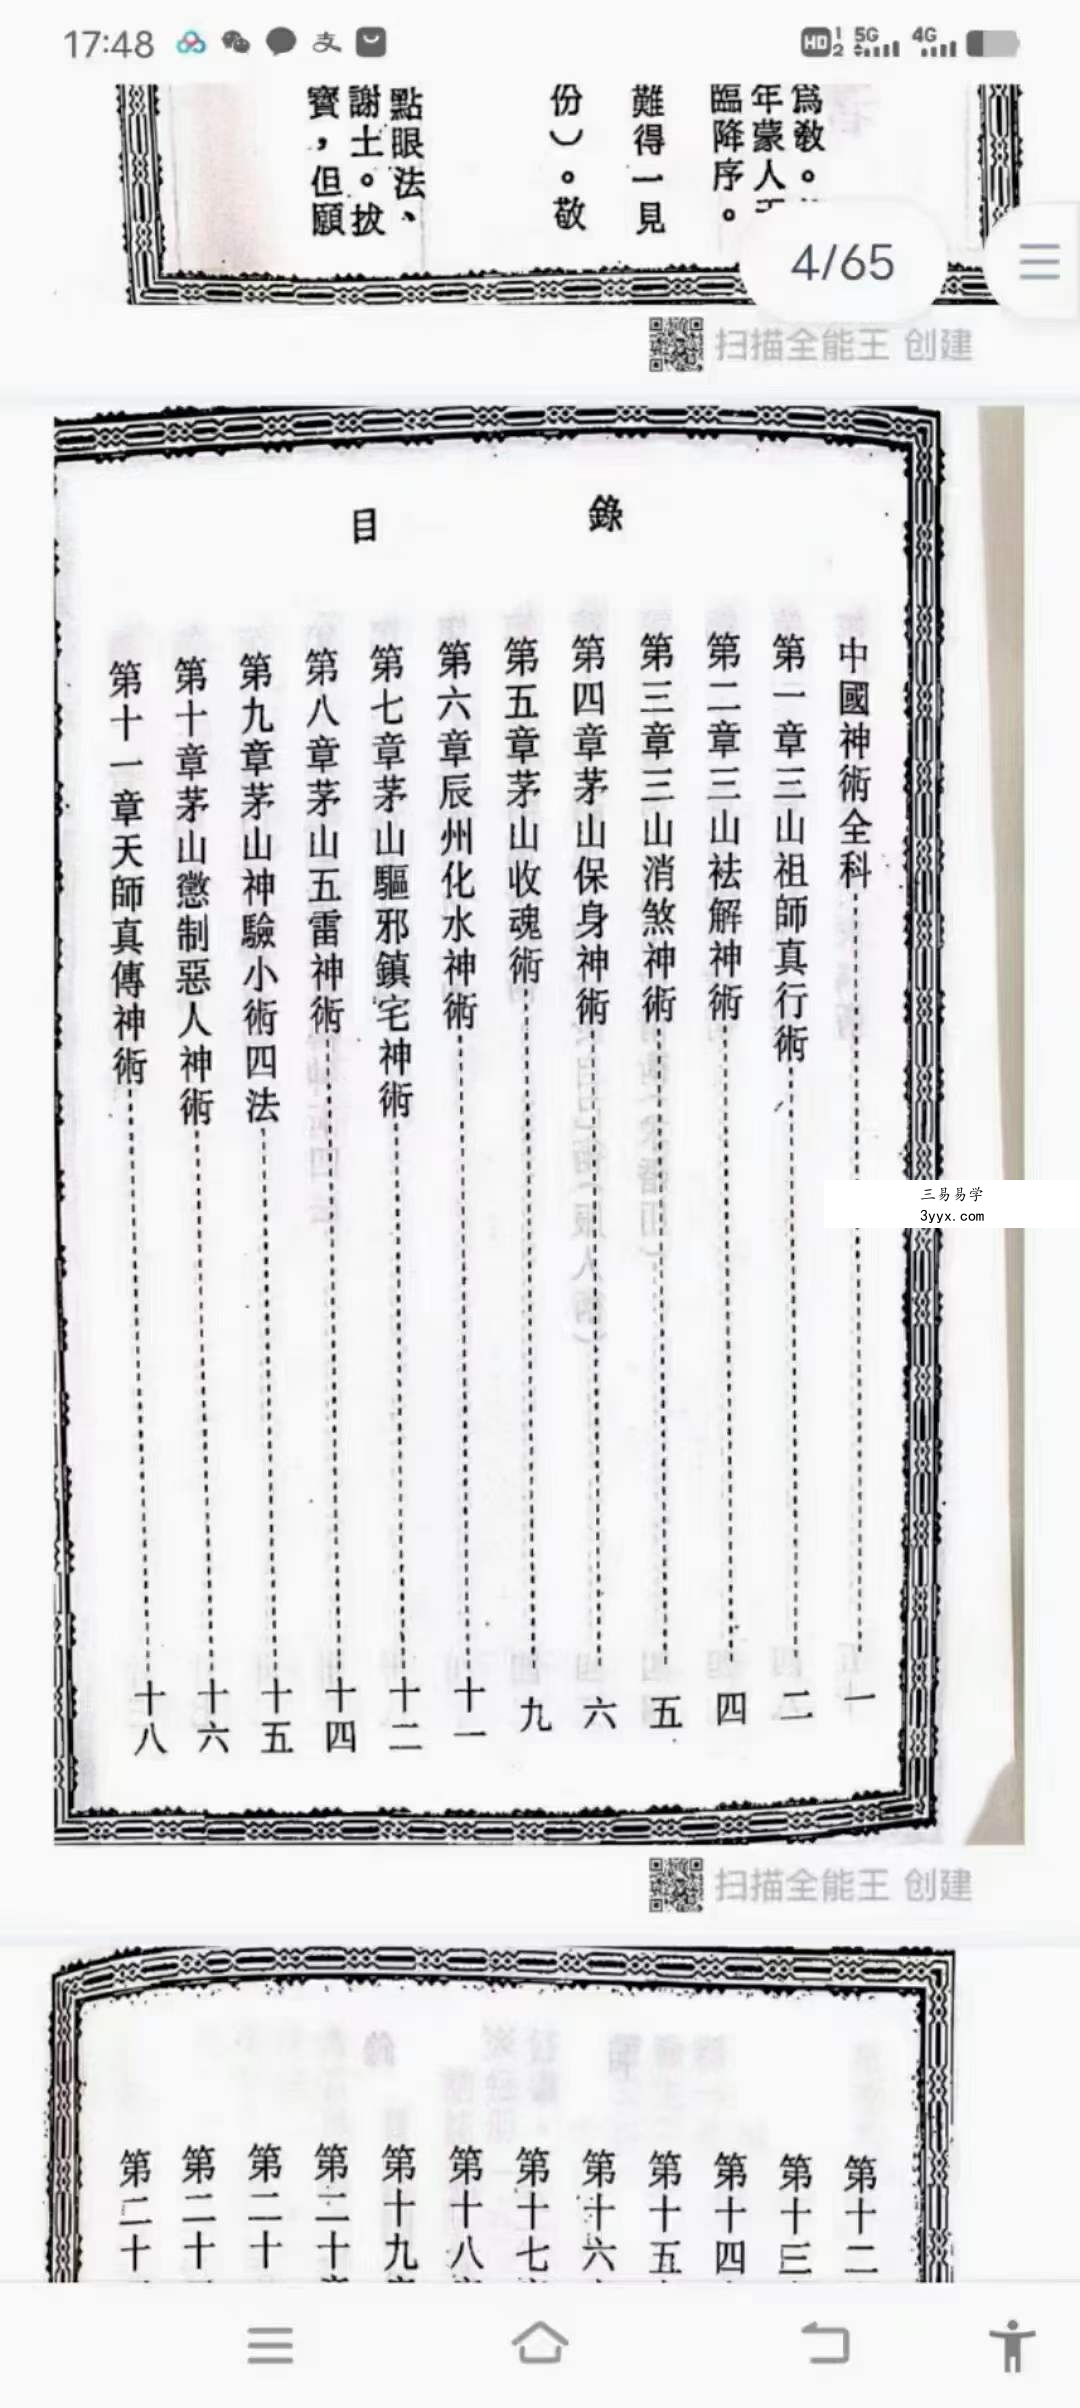 17:48
HD 1 2 5G 4G
為教。
年蒙人
臨降序。
難得一見
份）。敬
點眼法、
謝土。拔
寶，但願
4/65
扫描全能王 创建
目錄
中國神術全科 一
第一章三山祖師真行術 二
第二章三山袪解神術 四
第三章三山消煞神術 五
第四章茅山保身神術 六
第五章茅山收魂術 九
第六章辰州化水神術 十一
第七章茅山驅邪鎮宅神術 十二
第八章茅山五雷神術 十四
第九章茅山神驗小術四法 十五
第十章茅山懲制惡人神術 十六
第十一章天師真傳神術 十八
三易易学
3yyx.com
扫描全能王 创建
第十二
第十三
第十四
第十五
第十六
第十七
第十八
第十九
第二十
第二十
第二十
第二十